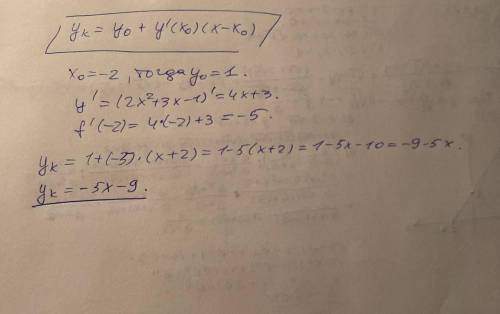 yк = y₀ + y'(x₀)(x-x₀)
x₀=-2, тогда y₀=1.
y'=(2x²+3x-1)'=4x+3.
f'(-2)= 4·(-2)+3=-5.
yк = 1+(-5)·(x+2)=1-5(x+2)=1-5x-10=-9-5x.
yк = -5x-9.